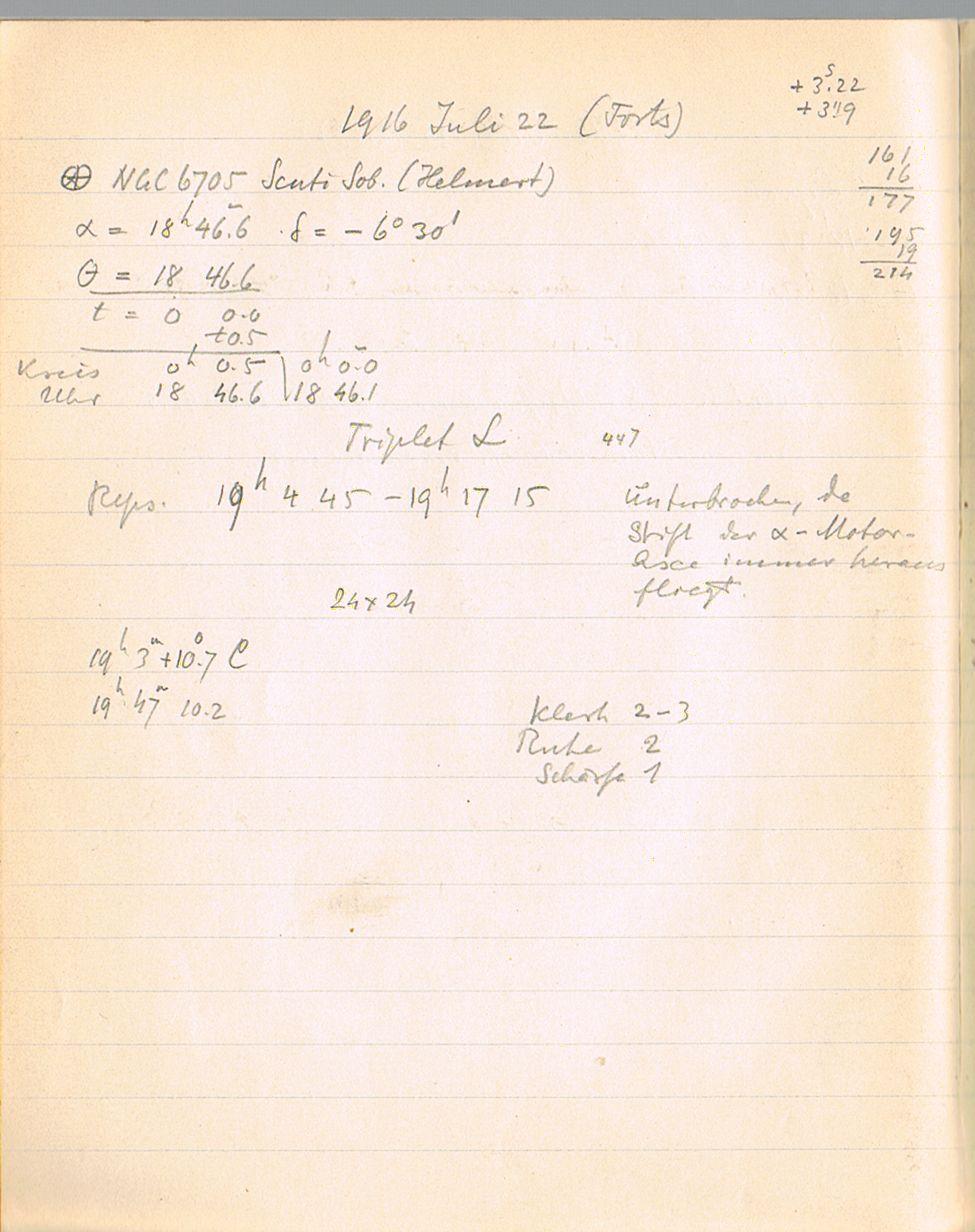 + 3ˢ.22
1916 Juli 22 (Forts) + 3".19
⊕ NGC 6705 Scuti Sob. (Helmert)
α = 18ʰ 46ᵐ.6 δ = − 6° 30'
θ = 18 46.6
t = 0 0.0
+0.5
Kreis 0ʰ 0.5 | 0ʰ 0ᵐ.0
Uhr 18 46.6 | 18 46.1
161
16
177
195
19
214
Triplet L 447
19ʰ 4 45 − 19ʰ 17 15
Unterbrochen, da
Stift der α-Motor-
Axe immer heraus
fliegt.
24 x 24
19ʰ 3ᵐ +10°.7 C
19ʰ 47ᵐ 10.2
Klarh 2−3
Ruhe 2
Schärfe 1